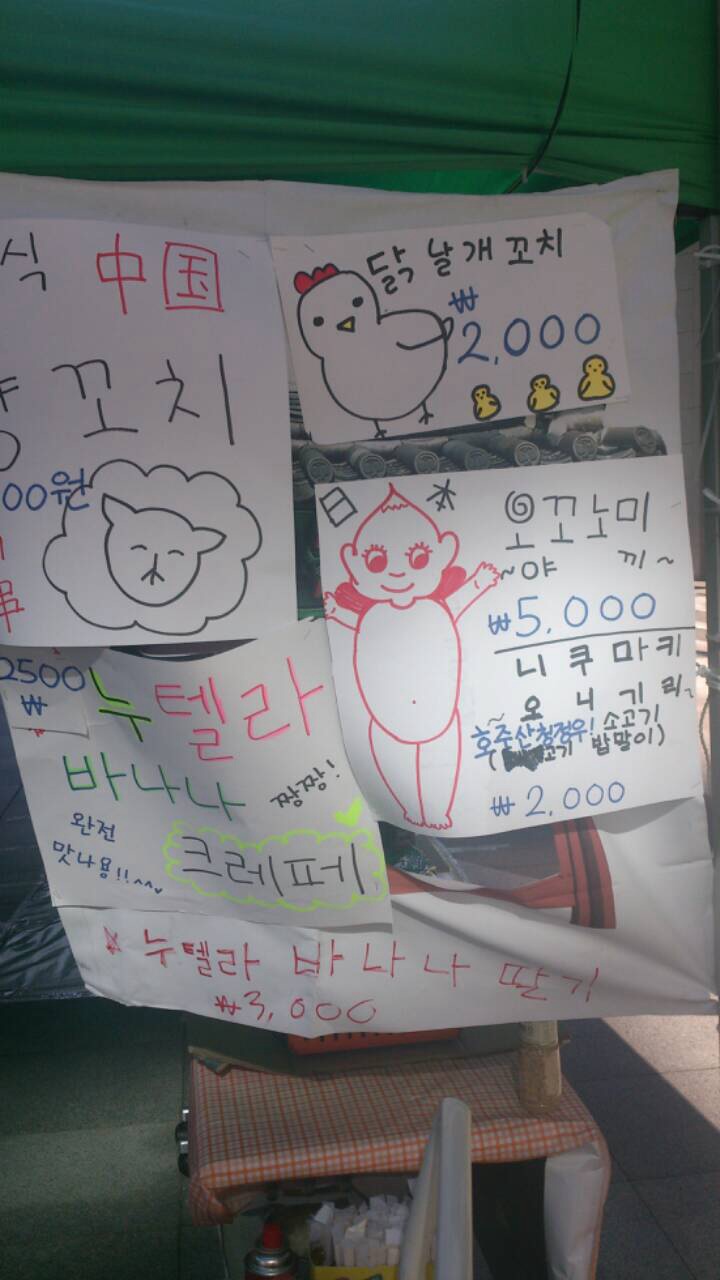 식 中国
양꼬치
00원
串
닭날개꼬치
₩
2,000
日 本
오꼬노미
~야 끼~
₩5,000
니쿠마키
오니기리~
호주산청정우! 소고기
(고기 밥말이)
₩ 2,000
2500
₩
누텔라
바나나 짱짱!
완전
맛나용!!^^
크레페
누텔라 바나나 딸기
₩3,000